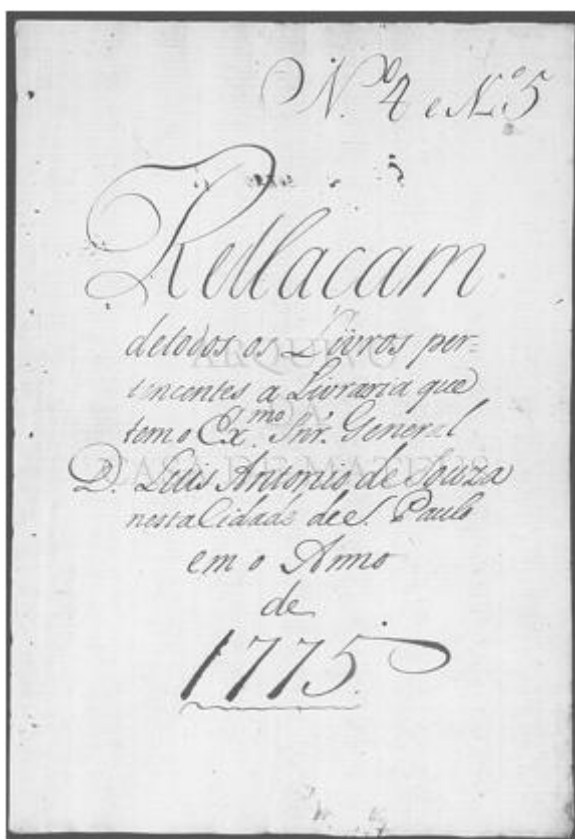 N.º 4 e N.º 5
Rellacam
detodos os Livros per=
tencentes a Livraria que
tem o Ex.mo Snr. General
D. Luis Antonio de Souza
nesta Cidade de S. Paulo
em o Anno
de
1775.
ARQUIVO
DA
CASA DE MATEUS